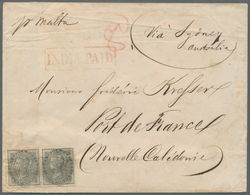 pr Malta
Via Sydney
australia
INDIA PAID
Monsieur frédéric Knoffer
Port de France
(Nouvelle Calédonie)